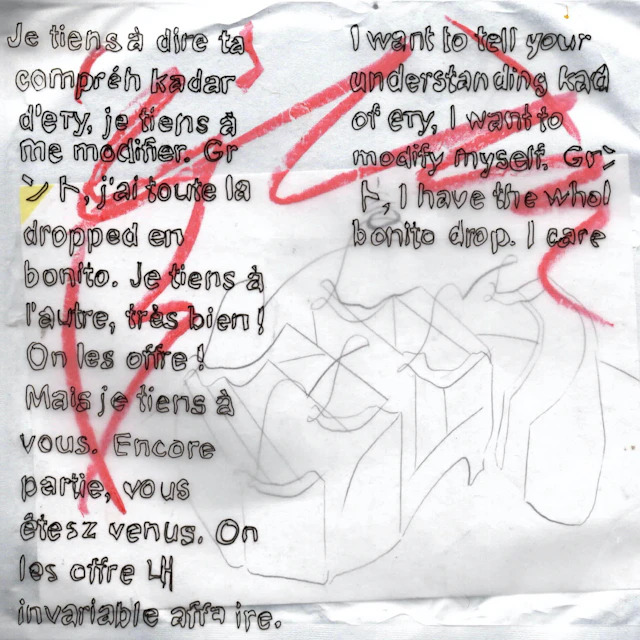 Je tiens à dire ta
compréh kadar
d'eту, je tiens à
me modifier. Gr
ン ト, j'ai toute la
dropped en
bonito. Je tiens à
l'autre, très bien !
On les offre !
Mais je tiens à
vous. Encore
partie, vous
êtesz venus. On
les offre
invariable aff ire.
I want to tell your
understanding kad
of eту, I want to
modify myself. Grン
ト, I have the whol
bonito drop. I care